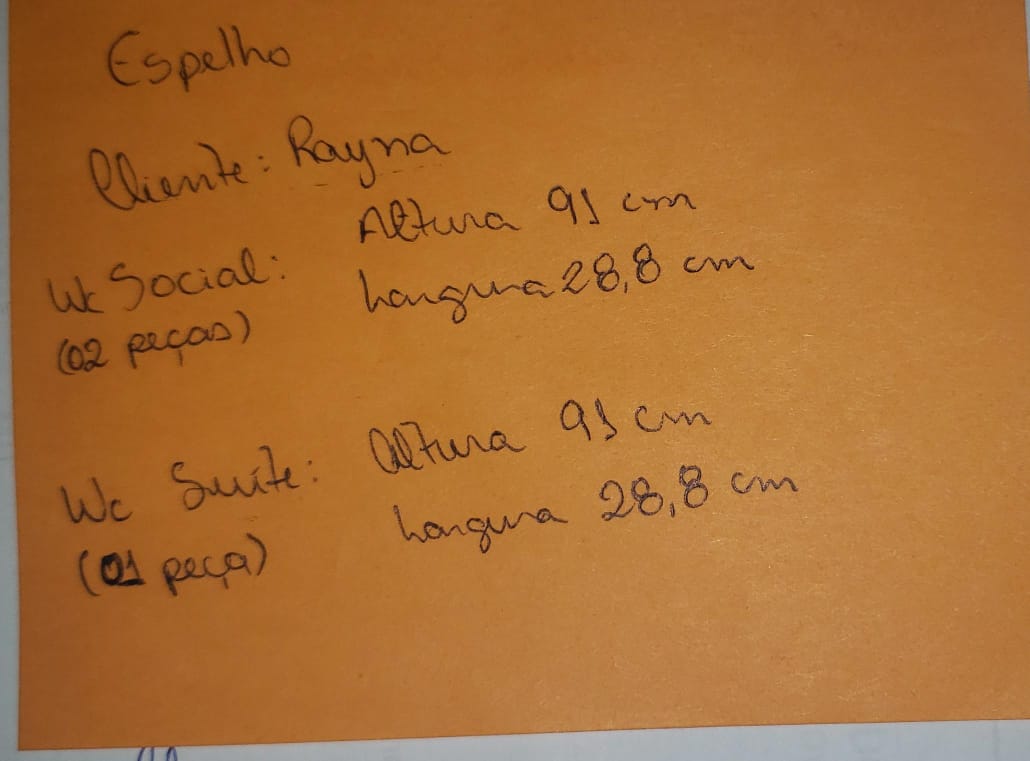 Espelho
Cliente: Rayna
Wc Social: Altura 91 cm
(02 peças) Largura 28,8 cm
Wc Suíte: Altura 91 cm
(01 peça) Largura 28,8 cm